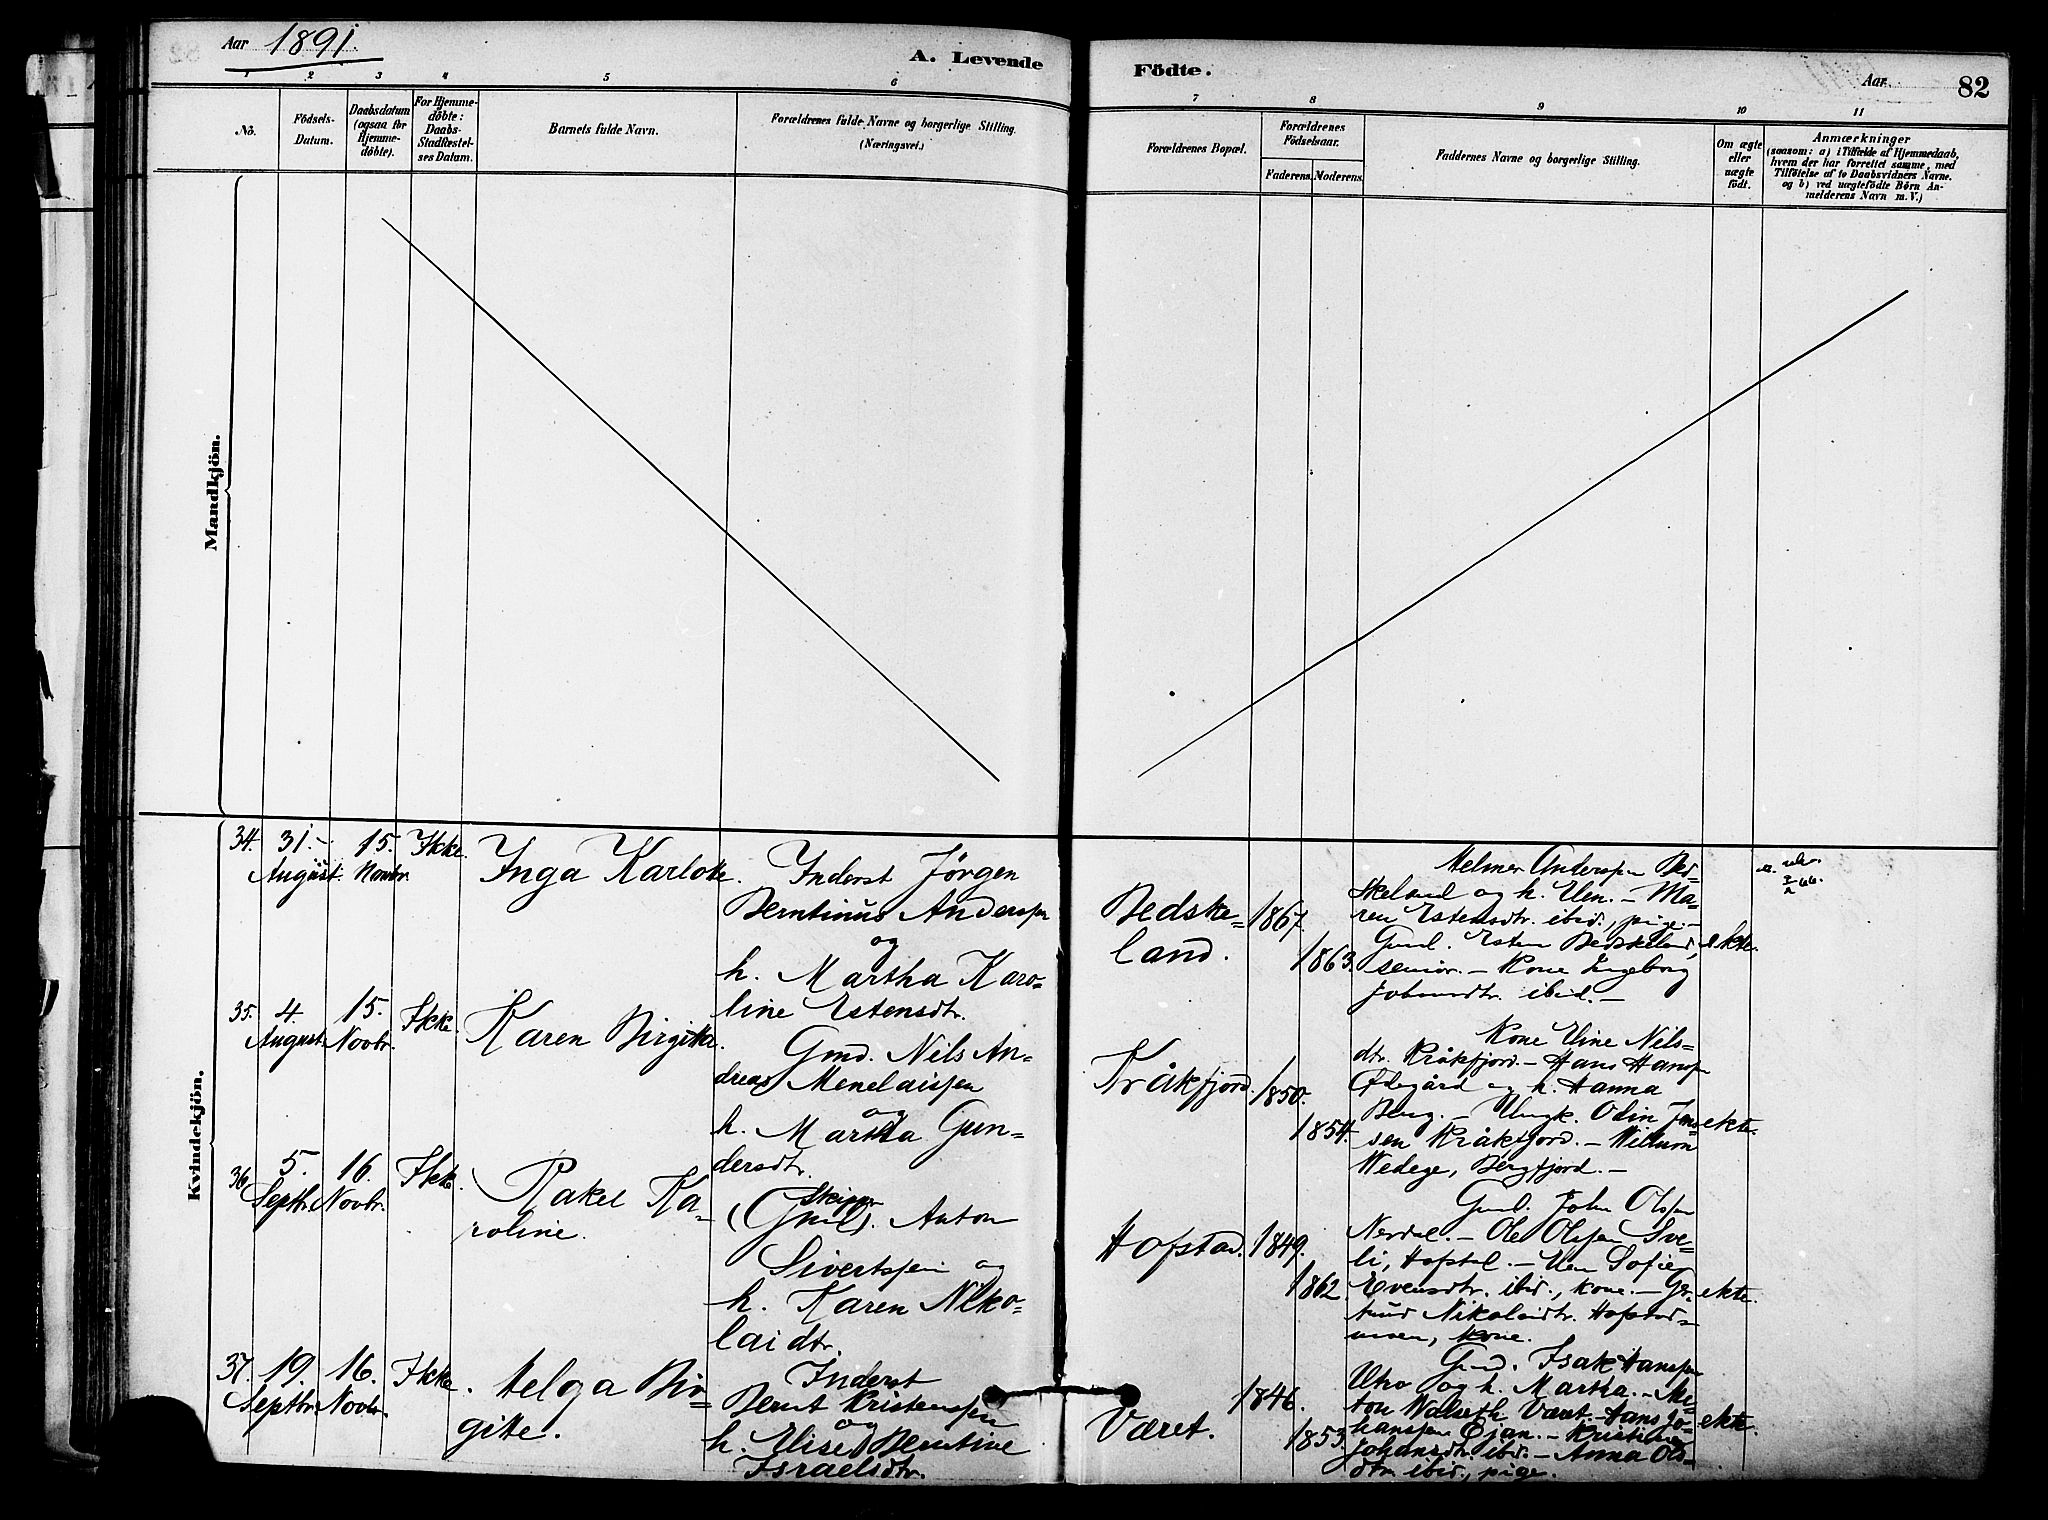 Aar 1891.
A. Levende
Födte.
Aar
82
1 2 3 4 5 6
7 8 9 10 11
No.
Födsels-
Datum.
Daabsdatum
(ogsaa for
Hjemme-
döbte).
For Hjemme-
döbte:
Daabs-
Stadfæstel-
ses Datum.
Barnets fulde Navn.
Forældrenes fulde Navne og borgerlige Stilling.
(Næringsvei.)
Forældrenes Bopæl.
Forældrenes
Födselsaar.
Faderens.
Moderens.
Faddernes Navne og borgerlige Stilling.
Om ægte
eller
uægte
födt.
Anmærkninger
(saasom: a) i Tilfælde af Hjemmedaab,
hvem der har forrettet samme, med
Tilföielse af to Daabsvidners Navne.
og b) ved uægtefödte Börn An-
melderens Navn m. V.)
Mandkjön.
Kvindekjön.
34.
31.
August.
15.
Novbr.
Ikke.
Inga Karlotte.
Inderst Jørgen
Berntinus Anderssen
og
h. Martha Karo-
line Estensdtr.
Bedske-
land.
1867.
1863.
Helmer Anderssen Bed-
skeland og h. Elen. - Ma-
ren Estensdtr. ibid., pige. -
Gmd. Esten Bedskeland,
senior. - Kone Ingeborg
Johnsdtr. ibid. -
ekte.
35.
4.
August.
15.
Novbr.
Ikke.
Karen Birgitte.
Gmd. Nils An-
dreas Menelaissen
og
h. Martha Gun-
dersdtr.
Kråkfjord.
1850.
1854.
Kone Eline Nils-
dtr. Kråkfjord. - Hans Hanssen
Ødegård og h. Hanna
Berg. - Ungk. Odin Jens-
sen Kråkfjord. -
Wedege, Bergfjord. -
ekte.
36.
5.
Septbr.
16.
Novbr.
Ikke.
Rakel Ka-
roline.
Skipper
(Gmd). Anton
Sivertssen og
h. Karen Niko-
laidtr.
Hofstad.
1849.
1862
Gmd. John Olssen
Nerdal. - Ole Olssen Sve-
li, Hofstad. - Elen Sofie
Evensdtr. ibid., kone. - Ger-
trud Nikolaidtr. Hofstad-
moen, kone.
ekte.
37.
19.
Septbr.
16.
Novbr.
Ikke.
Helga Bir-
gitte.
Inderst
Bernt Kristenssen
og
h. Elise Berntine
Israelsdtr.
Været.
1846.
1853.
Gmd. Isak Hanssen
Utro og h. Martha. -
ton Walseth Været. - Hans Jo-
hanssen Øjan. - Kristine
Johansdtr. ibid. - Anna Ols-
dtr. ibid., pige.
ekte.